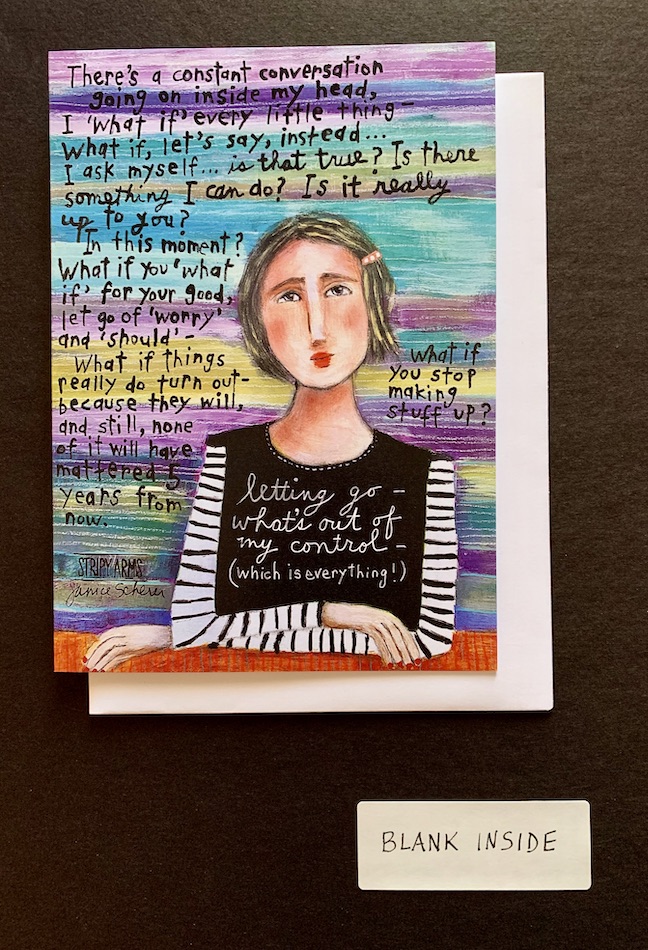 There's a constant conversation
going on inside my head,
I 'what if' every little thing -
What if, let's say, instead...
I ask myself... is that true? Is there
something I can do? Is it really
up to you?
In this moment?
What if you 'what
if' for your good,
let go of 'worry'
and 'should' -
What if things
really do turn out -
because they will,
and still, none
of it will have
mattered 5
years from
now.
What if
you stop
making
stuff up?
letting go -
what's out of
my control -
(which is everything!)
STRIPY ARMS
Janice Scherer
BLANK INSIDE